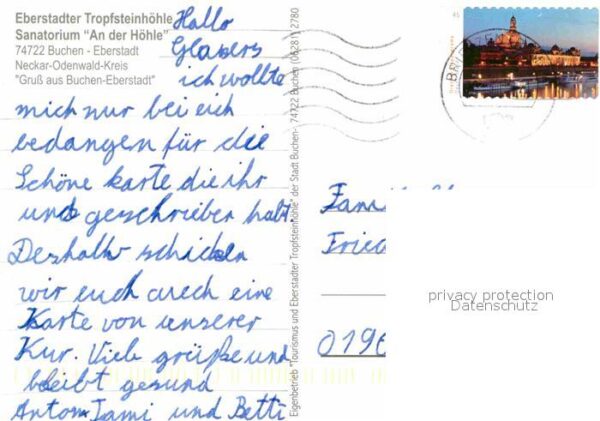 Eberstadter Tropfsteinhöhle
Sanatorium "An der Höhle"
74722 Buchen - Eberstadt
Neckar-Odenwald-Kreis
"Gruß aus Buchen-Eberstadt"
Hallo
Glasers
ich wollte
mich nur bei eich
bedangen für die
Schöne karte die ihr
uns geschrieber habt.
Deshalb schicken
wir euch auch eine
Karte von unserer
Kur. Viele grüße und
bleibt gesund
Anton Jami und Betti
Eigenbetrieb "Tourismus und Eberstadter Tropfsteinhöhle" der Stadt Buchen- 74722 Buchen (06281) 2780
45
Fami
Fried
0196
privacy protection
Datenschutz